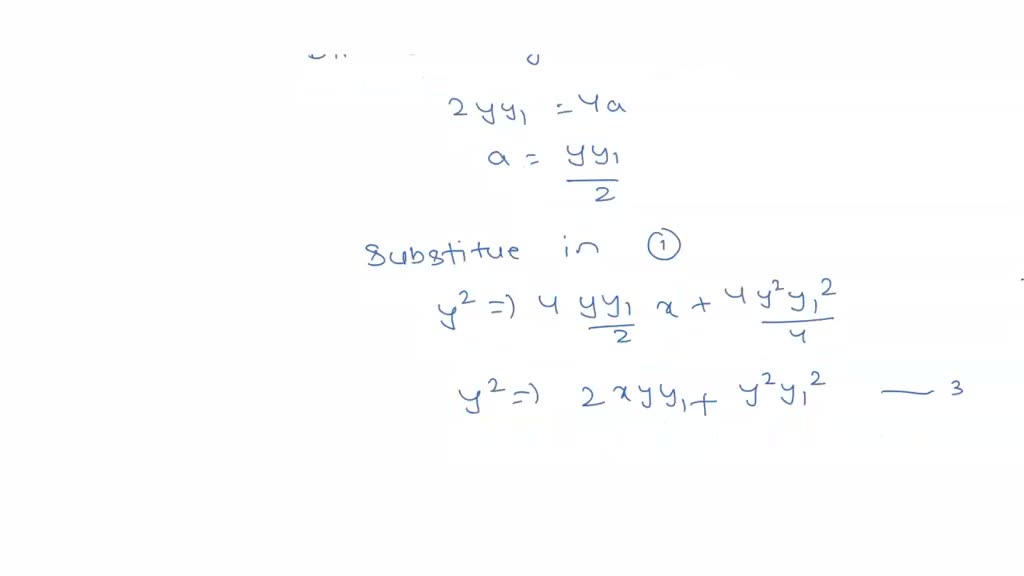 2yy₁ = 4a
a = yy₁/2
Substitue in ①
y² => 4 yy₁/2 x + 4 y²y₁²/4
y² => 2xyy₁ + y²y₁² — 3